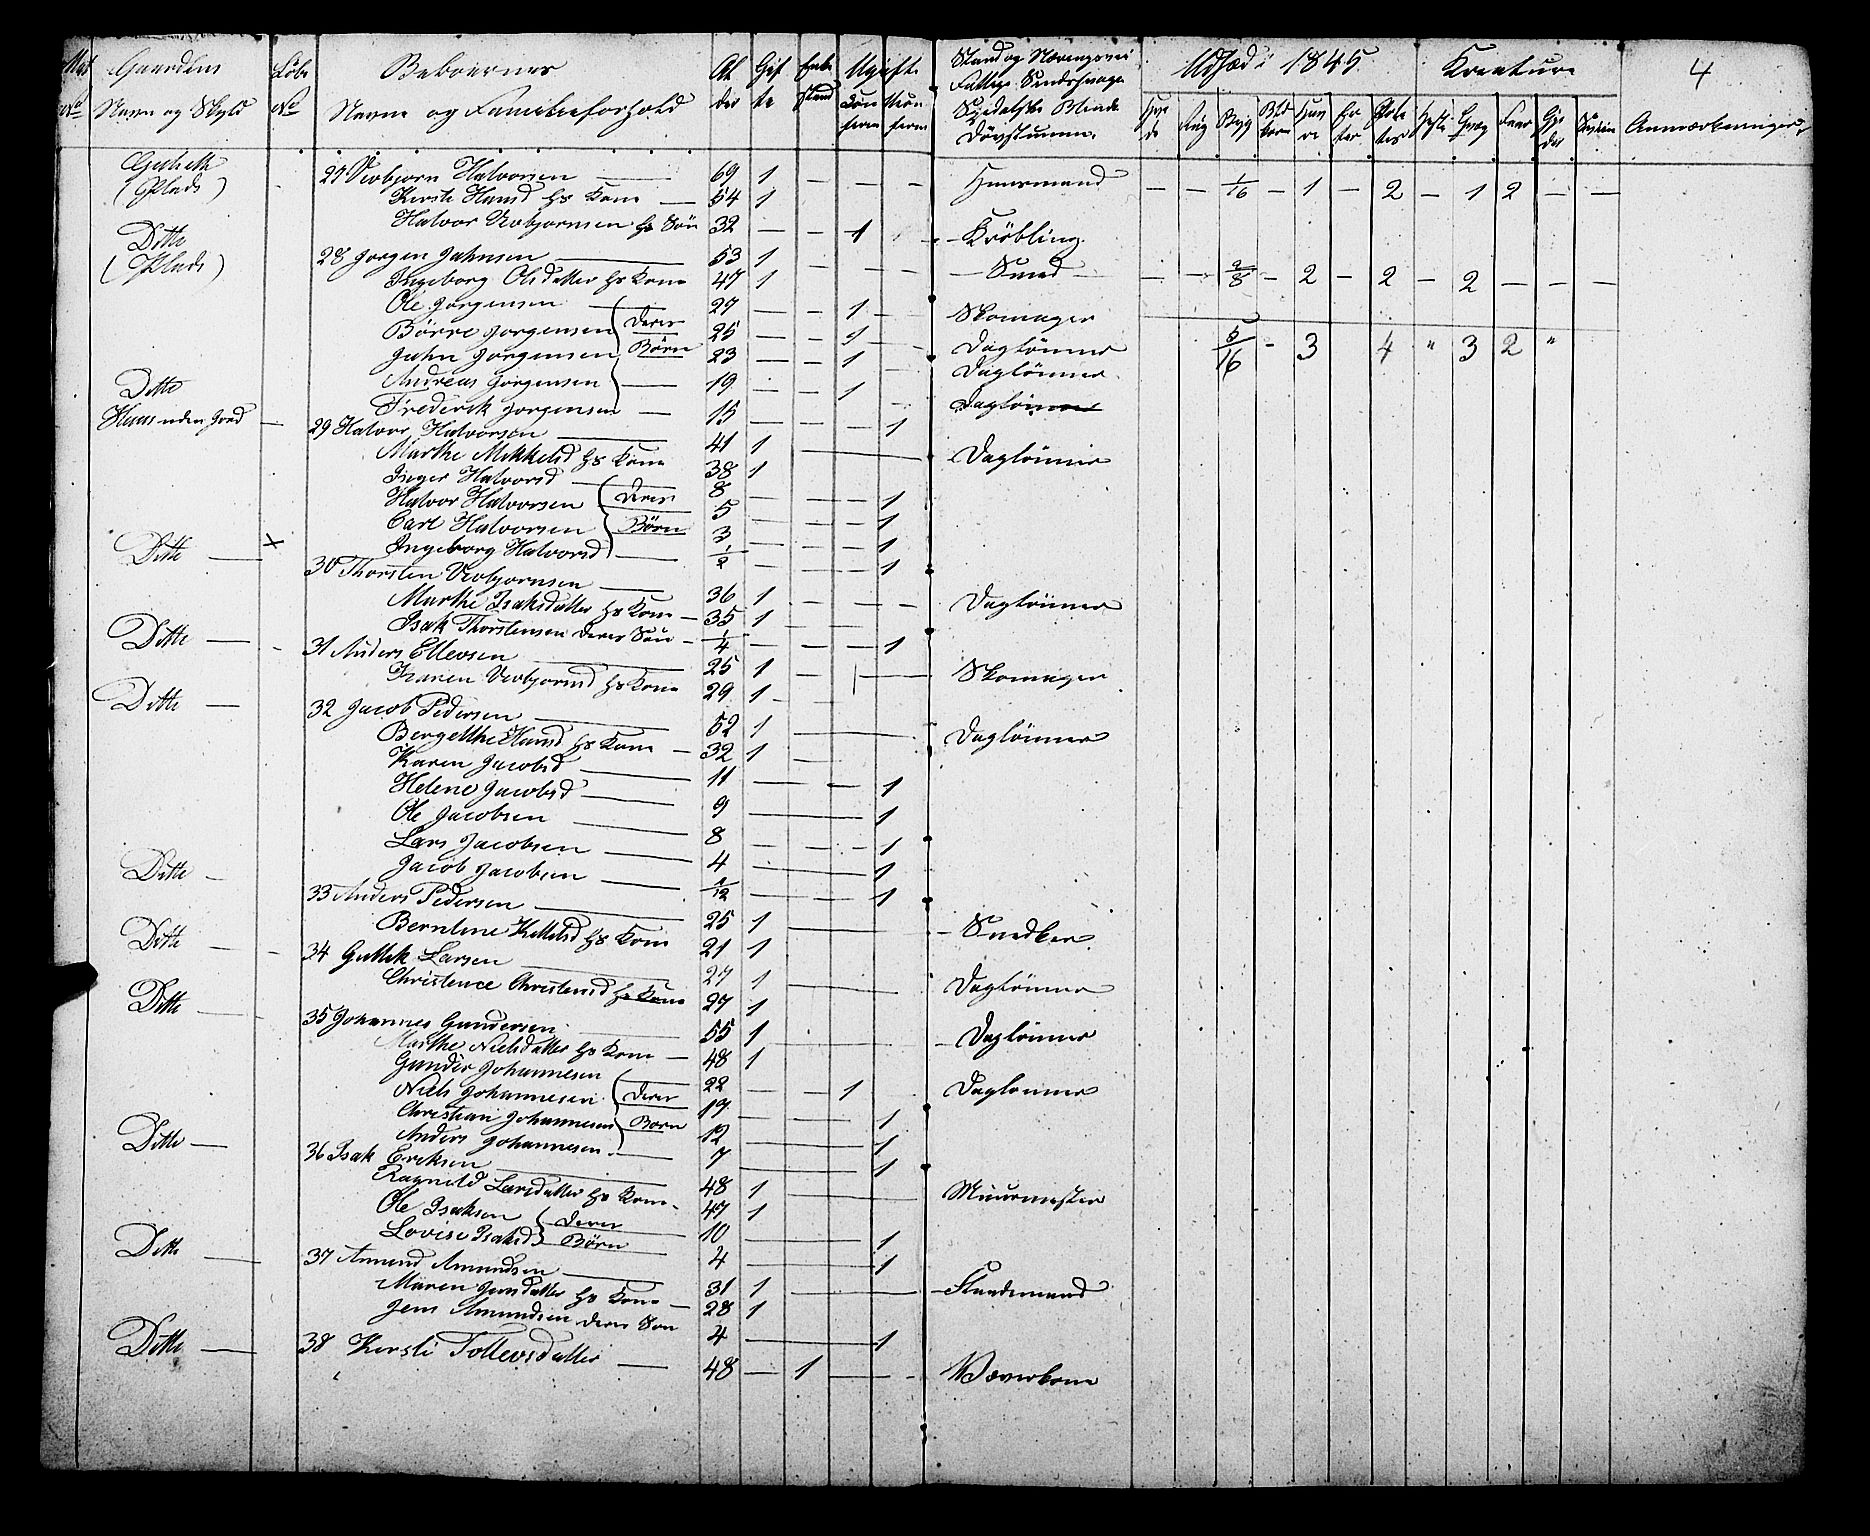 Mat No Gaardens Navn og Skyld Løbe No Beboernes Navne og Familieforhold Alder Gifte Enke stand Ugifte Stand og Næringsvei Udsæd i 1845 Kreature 4
Hvede Rug Byg Havre Erter Poteter Heste Qvæg Faar Gjeder Sviin Anmærkninger
(Plads) 27 Vivbjørn Halvorsen 69 1 — — — Huusmand — — 1/16 — 1 — 2 — 1 2 — —
Kirsti Hansd hs Kone — 54 1
Halvor Vivbjørnsen hs Søn 32 — — 1 Krøbling
Ditto (Plads) 28 Jørgen Jahnsen 53 1 — — — Smed — — 2/8 — 2 — 2 — 2 — — —
Ingeborg Olsdatter hs Kone 47 1
Ole Jørgensen 27 — — 1 — Skomager
Børre Jørgensen Deres 25 — — 1 — Daglønner 5/16 - 3 4 " 3 2 "
Jahn Jørgensen Børn 23 — — 1 Daglønner
Andreas Jørgensen — 19 — — 1 — Daglønner
Frederik Jørgensen — 15 — — — 1
Ditto Huus uden Jord — 29 Halvor Halvorsen 41 1 — Daglønner
Marthe Mikkelsd hs Kone 38 1
Inger Halvorsd 8 — — — 1
Halvor Halvorsen Deres 5 — — — 1
Carl Halvorsen Børn 3 — — — 1
Ingeborg Halvorsd — 1/2 — — — 1
Ditto — x 30 Thorsten Vivbjørnsen 36 1 — — — Daglønner
Marthe Isaksdatter hs Kone — 35 1
Isak Thorstensen deres Søn — 1/4 — — — 1
Ditto — 31 Anders Ellevsen 25 1 — Skomager
Karen Vivbjørnsd hs Kone 29 1
Ditto — 32 Jacob Pedersen 52 1 — Daglønner
Bergethe Hansd hs Kone — 32 1
Karen Jacobsd 11 — — 1
Helene Jacobsd 9 — 1
Ole Jacobsen 8 — — — 1
Lars Jacobsen 4 — 1
Jacob Jacobsen /12 — 1
Ditto — 33 Anders Pedersen 25 1 — Snedker
Berntine Kittilsd hs Kone 21 1
Ditto — 34 Guttik Larsen 27 1 — Daglønner
Christence Christensd hs Kone 27 1
Ditto — 35 Johannes Gundersen 55 1 — Daglønner
Marthe Nielsdatter hs Kone — 48 1
Gunder Johannesen 22 — — 1 Daglønner
Niels Johannesen Deres 19 — — 1
Christian Johannesen Børn 12 — 1
Anders Johannesen — 7 — 1
Ditto — 36 Isak Eriksen 48 1 — Muurmester
Ragnild Larsdatter hs Kone 47 1
Ole Isaksen Deres 10 — 1
Lovise Isaksd Børn 4 — 1
Ditto — 37 Amund Amundsen 31 1 —
Maren Jensdatter hs Kone — 28 1
Jens Amundsen deres Søn 4 — 1
Ditto — 38 Kirsti Tollevsdatter — 48 — 1 — Væverkone